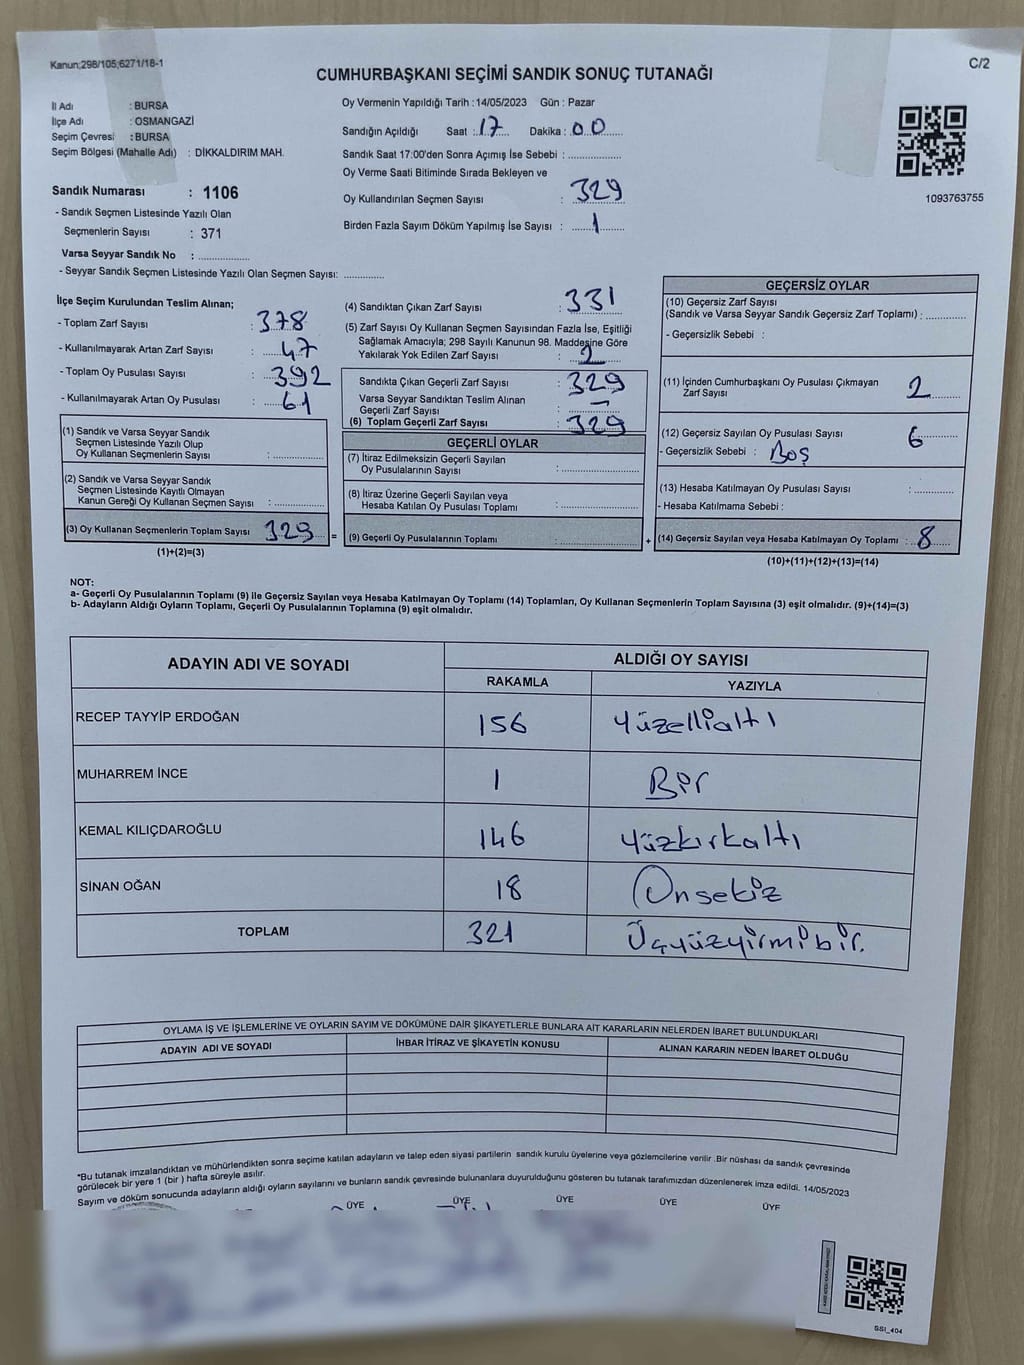 Kanun;298/105;6271/18-1
C/2
CUMHURBAŞKANI SEÇİMİ SANDIK SONUÇ TUTANAĞI
İl Adı : BURSA
İlçe Adı : OSMANGAZİ
Seçim Çevresi : BURSA
Seçim Bölgesi (Mahalle Adı) : DİKKALDIRIM MAH.
Oy Vermenin Yapıldığı Tarih : 14/05/2023 Gün : Pazar
Sandığın Açıldığı Saat : 17 Dakika : 00
Sandık Saat 17:00'den Sonra Açımış İse Sebebi :
Oy Verme Saati Bitiminde Sırada Bekleyen ve
Oy Kullandırılan Seçmen Sayısı : 329
Birden Fazla Sayım Döküm Yapılmış İse Sayısı : 1
1093763755
Sandık Numarası : 1106
- Sandık Seçmen Listesinde Yazılı Olan
Seçmenlerin Sayısı : 371
Varsa Seyyar Sandık No :
- Seyyar Sandık Seçmen Listesinde Yazılı Olan Seçmen Sayısı:
İlçe Seçim Kurulundan Teslim Alınan;
- Toplam Zarf Sayısı : 378
- Kullanılmayarak Artan Zarf Sayısı : 47
- Toplam Oy Pusulası Sayısı : 392
- Kullanılmayarak Artan Oy Pusulası : 61
(1) Sandık ve Varsa Seyyar Sandık
Seçmen Listesinde Yazılı Olup
Oy Kullanan Seçmenlerin Sayısı :
(2) Sandık ve Varsa Seyyar Sandık
Seçmen Listesinde Kayıtlı Olmayan
Kanun Gereği Oy Kullanan Seçmen Sayısı :
(3) Oy Kullanan Seçmenlerin Toplam Sayısı 329
(1)+(2)=(3)
=
(4) Sandıktan Çıkan Zarf Sayısı : 331
(5) Zarf Sayısı Oy Kullanan Seçmen Sayısından Fazla İse, Eşitliği
Sağlamak Amacıyla; 298 Sayılı Kanunun 98. Maddesine Göre
Yakılarak Yok Edilen Zarf Sayısı : 2
Sandıkta Çıkan Geçerli Zarf Sayısı : 329
Varsa Seyyar Sandıktan Teslim Alınan
Geçerli Zarf Sayısı : -
(6) Toplam Geçerli Zarf Sayısı : 329
GEÇERLİ OYLAR
(7) İtiraz Edilmeksizin Geçerli Sayılan
Oy Pusulalarının Sayısı :
(8) İtiraz Üzerine Geçerli Sayılan veya
Hesaba Katılan Oy Pusulası Toplamı :
(9) Geçerli Oy Pusulalarının Toplamı :
+
GEÇERSİZ OYLAR
(10) Geçersiz Zarf Sayısı
(Sandık ve Varsa Seyyar Sandık Geçersiz Zarf Toplamı) :
- Geçersizlik Sebebi :
(11) İçinden Cumhurbaşkanı Oy Pusulası Çıkmayan
Zarf Sayısı 2
(12) Geçersiz Sayılan Oy Pusulası Sayısı 6
- Geçersizlik Sebebi : Boş
(13) Hesaba Katılmayan Oy Pusulası Sayısı :
- Hesaba Katılmama Sebebi :
(14) Geçersiz Sayılan veya Hesaba Katılmayan Oy Toplamı : 8
(10)+(11)+(12)+(13)=(14)
NOT:
a- Geçerli Oy Pusulalarının Toplamı (9) ile Geçersiz Sayılan ve Hesaba Katılmayan Oy Toplamı (14) Toplamları, Oy Kullanan Seçmenlerin Toplam Sayısına (3) eşit olmalıdır. (9)+(14)=(3)
b- Adayların Aldığı Oyların Toplamı, Geçerli Oy Pusulalarının Toplamına (9) eşit olmalıdır.
ADAYIN ADI VE SOYADI
ALDIĞI OY SAYISI
RAKAMLA YAZIYLA
RECEP TAYYİP ERDOĞAN 156 Yüzellialtı
MUHARREM İNCE 1 Bir
KEMAL KILIÇDAROĞLU 146 Yüzkırkaltı
SİNAN OĞAN 18 Onsekiz
TOPLAM 321 Üçyüzyirmibir.
OYLAMA İŞ VE İŞLEMLERİNE VE OYLARIN SAYIM VE DÖKÜMÜNE DAİR ŞİKAYETLERLE BUNLARA AİT KARARLARIN NELERDEN İBARET BULUNDUKLARI
ADAYIN ADI VE SOYADI İHBAR İTİRAZ VE ŞİKAYETİN KONUSU ALINAN KARARIN NEDEN İBARET OLDUĞU
*Bu tutanak imzalandıktan ve mühürlendikten sonra seçime katılan adayların ve talep eden siyasi partilerin sandık kurulu üyelerine veya gözlemcilerine verilir .Bir nüshası da sandık çevresinde
görülecek bir yere 1 (bir ) hafta süreyle asılır.
Sayım ve döküm sonucunda adayların aldığı oyların sayılarını ve bunların sandık çevresinde bulunanlara duyurulduğunu gösteren bu tutanak tarafımızdan düzenlenerek imza edildi. 14/05/2023
ÜYE ÜYE ÜYE ÜYE ÜYE
GSI_404